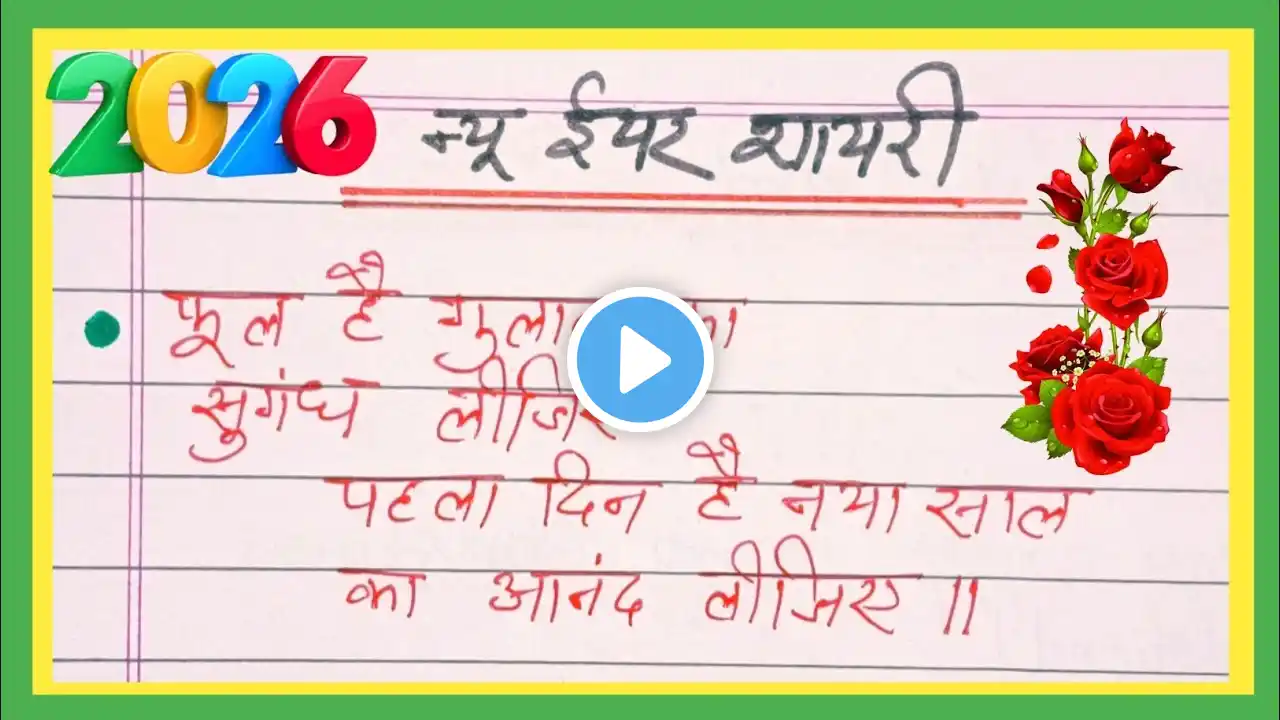 2026
न्यू ईयर शायरी
फूल है गुलाब का
सुगंध लीजिए
पहला दिन है नया साल
का आनंद लीजिए ॥